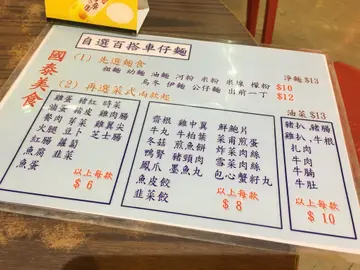 自選百搭車仔麵
國泰美食
(1) 先選麵食
粗麵 幼麵 油麵 河粉 米粉 米線 檬粉 淨麵 $13
烏冬 伊麵 公仔麵 $10
出前一丁 $12
(2) 再選菜式兩款起
油菜 $13
雞蛋 豬紅 時菜
滷蛋 蒜蓉 雞腎
豬肉 芽菜 雞翼尖
火腿 豆卜 芝士腸
紅腸 蘿蔔
魚腐 韭菜
魚蛋
以上每款
$ 6
齋根 雞中翼 鮮鮑片
牛丸 牛柏葉 菜甫煎蛋
冬菇 煎魚餅 雪菜肉絲
鴨腎 豬頸肉 炸菜肉絲
鳳爪 墨魚丸 包心蟹籽丸
魚皮餃
韭菜餃
以上每款
$ 8
豬扒, 豬腸
雞扒, 牛根
扎肉
牛肉
牛腩
牛肚
以上每款
$ 10